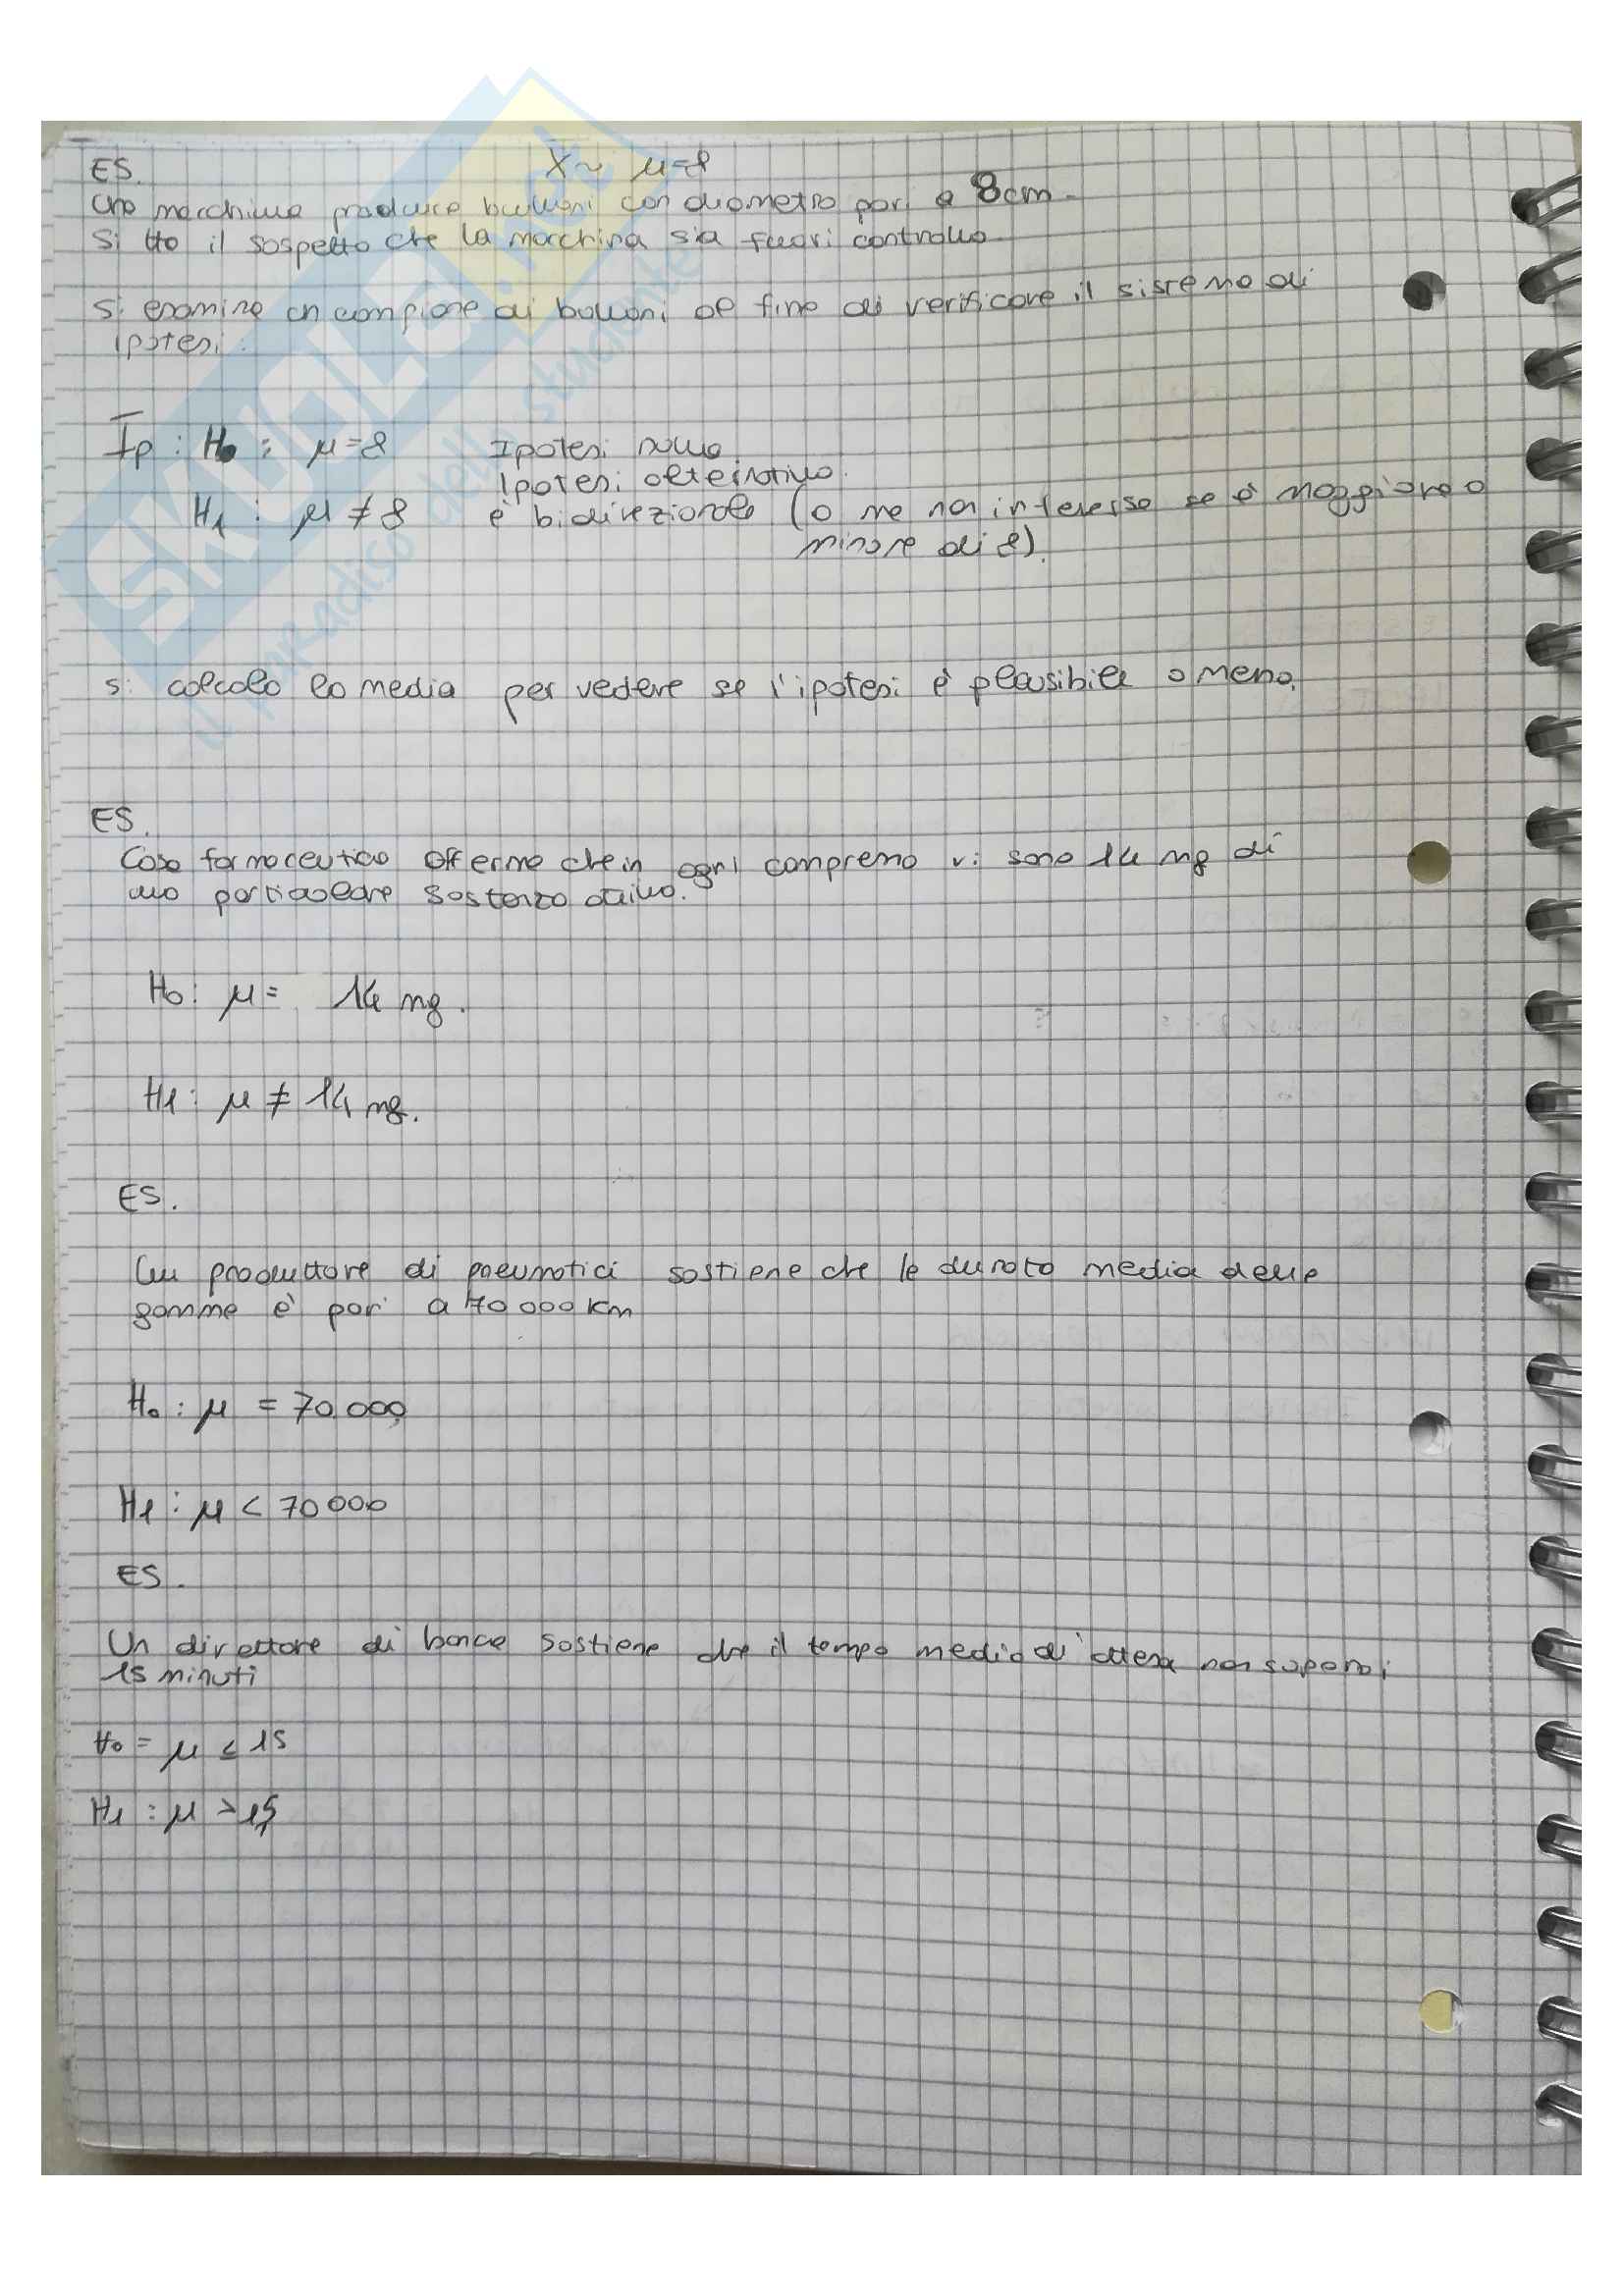 ES.
X ~ μ=8
Una macchina produce bulloni con diametro pari a 8cm.
Si ha il sospetto che la macchina sia fuori controllo
Si esamina un campione di bulloni al fine di verificare il sistema di
ipotesi.
Ip : H0 : μ=8 Ipotesi nulla.
Ipotesi alternativa.
H1 : μ ≠ 8 è bidirezionale (a me non interessa se è maggiore o
minore di 8).
si calcola la media per vedere se l'ipotesi è plausibile o meno.
ES.
Casa farmaceutica afferma che in ogni compressa vi sono 14 mg di
una particolare sostanza attiva.
H0: μ= 14 mg.
H1: μ ≠ 14 mg.
ES.
Un produttore di pneumatici sostiene che la durata media delle
gomme è pari a 70 000 km
H0 : μ = 70.000
H1 : μ < 70 000
ES.
Un direttore di banca sostiene che il tempo medio d'attesa non superi
15 minuti
H0 = μ ≤ 15
H1 : μ > 15
SKUOLA.net
il paradiso dello studente